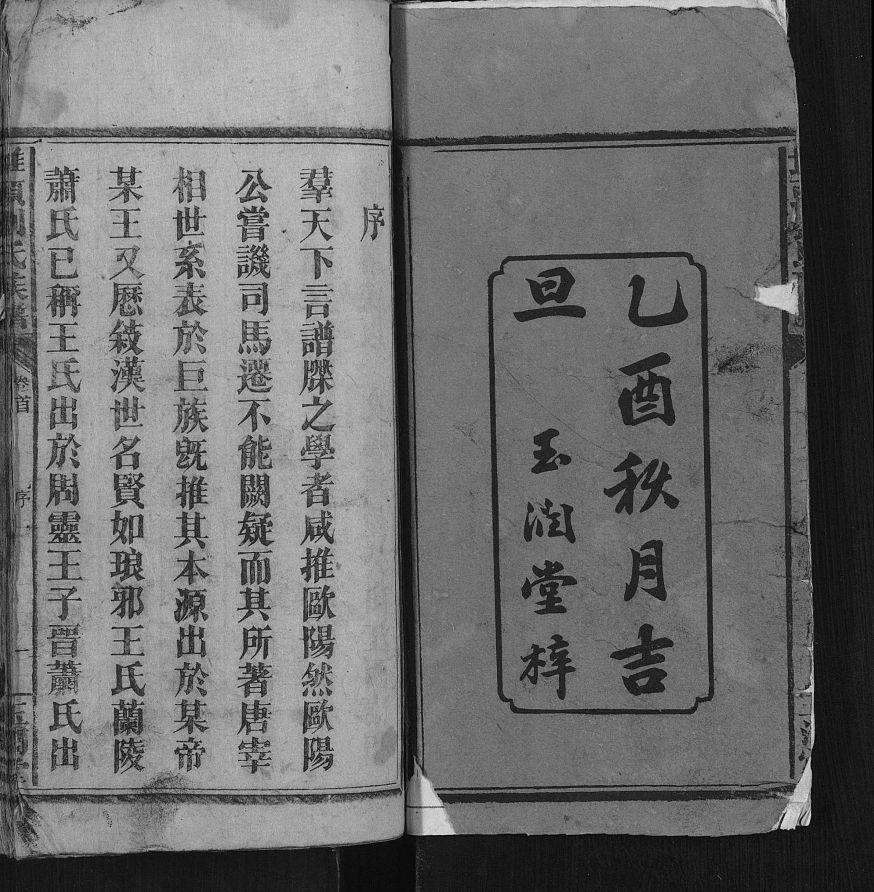 乙酉秋月吉
旦
玉潤堂梓
序
羣天下言譜牒之學者咸推歐陽然歐陽
公嘗譏司馬遷不能闕疑而其所著唐宰
相世系表於巨族既推其本源出於某帝
某王又歷敘漢世名賢如琅邪王氏蘭陵
蕭氏已稱王氏出於周靈王子晉蕭氏出
氏族譜
卷首
序
一